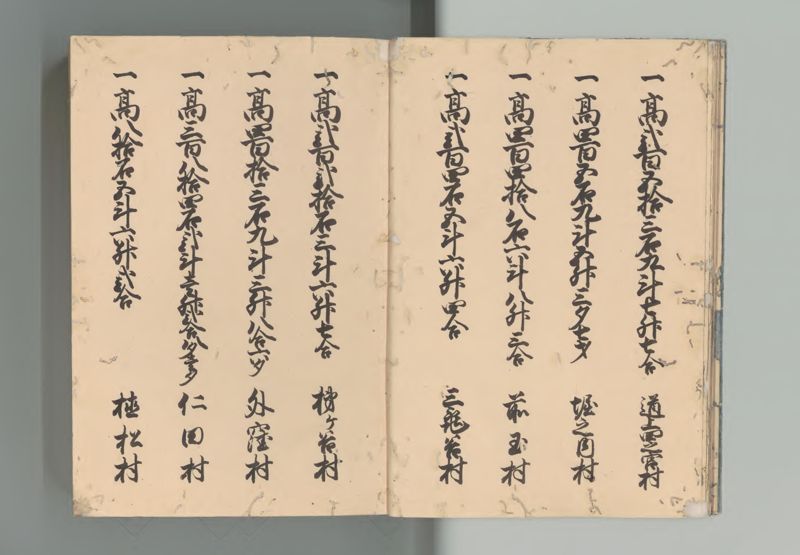 一高弐百五拾三石九斗七升七合 道上
一高四百五石九斗五升三夕七才 堀之内村
一高四百四拾八石六斗八升三合 前玉村
一高弐百四石五斗六升四合 三亀谷村
一高弐百弐拾石三斗六升七合 梯ヶ谷村
一高四百拾三石九斗三升八合六夕 外窪村
一高三百八拾四石弐斗壱升 仁田村
一高八拾石五斗六升弐合 植松村